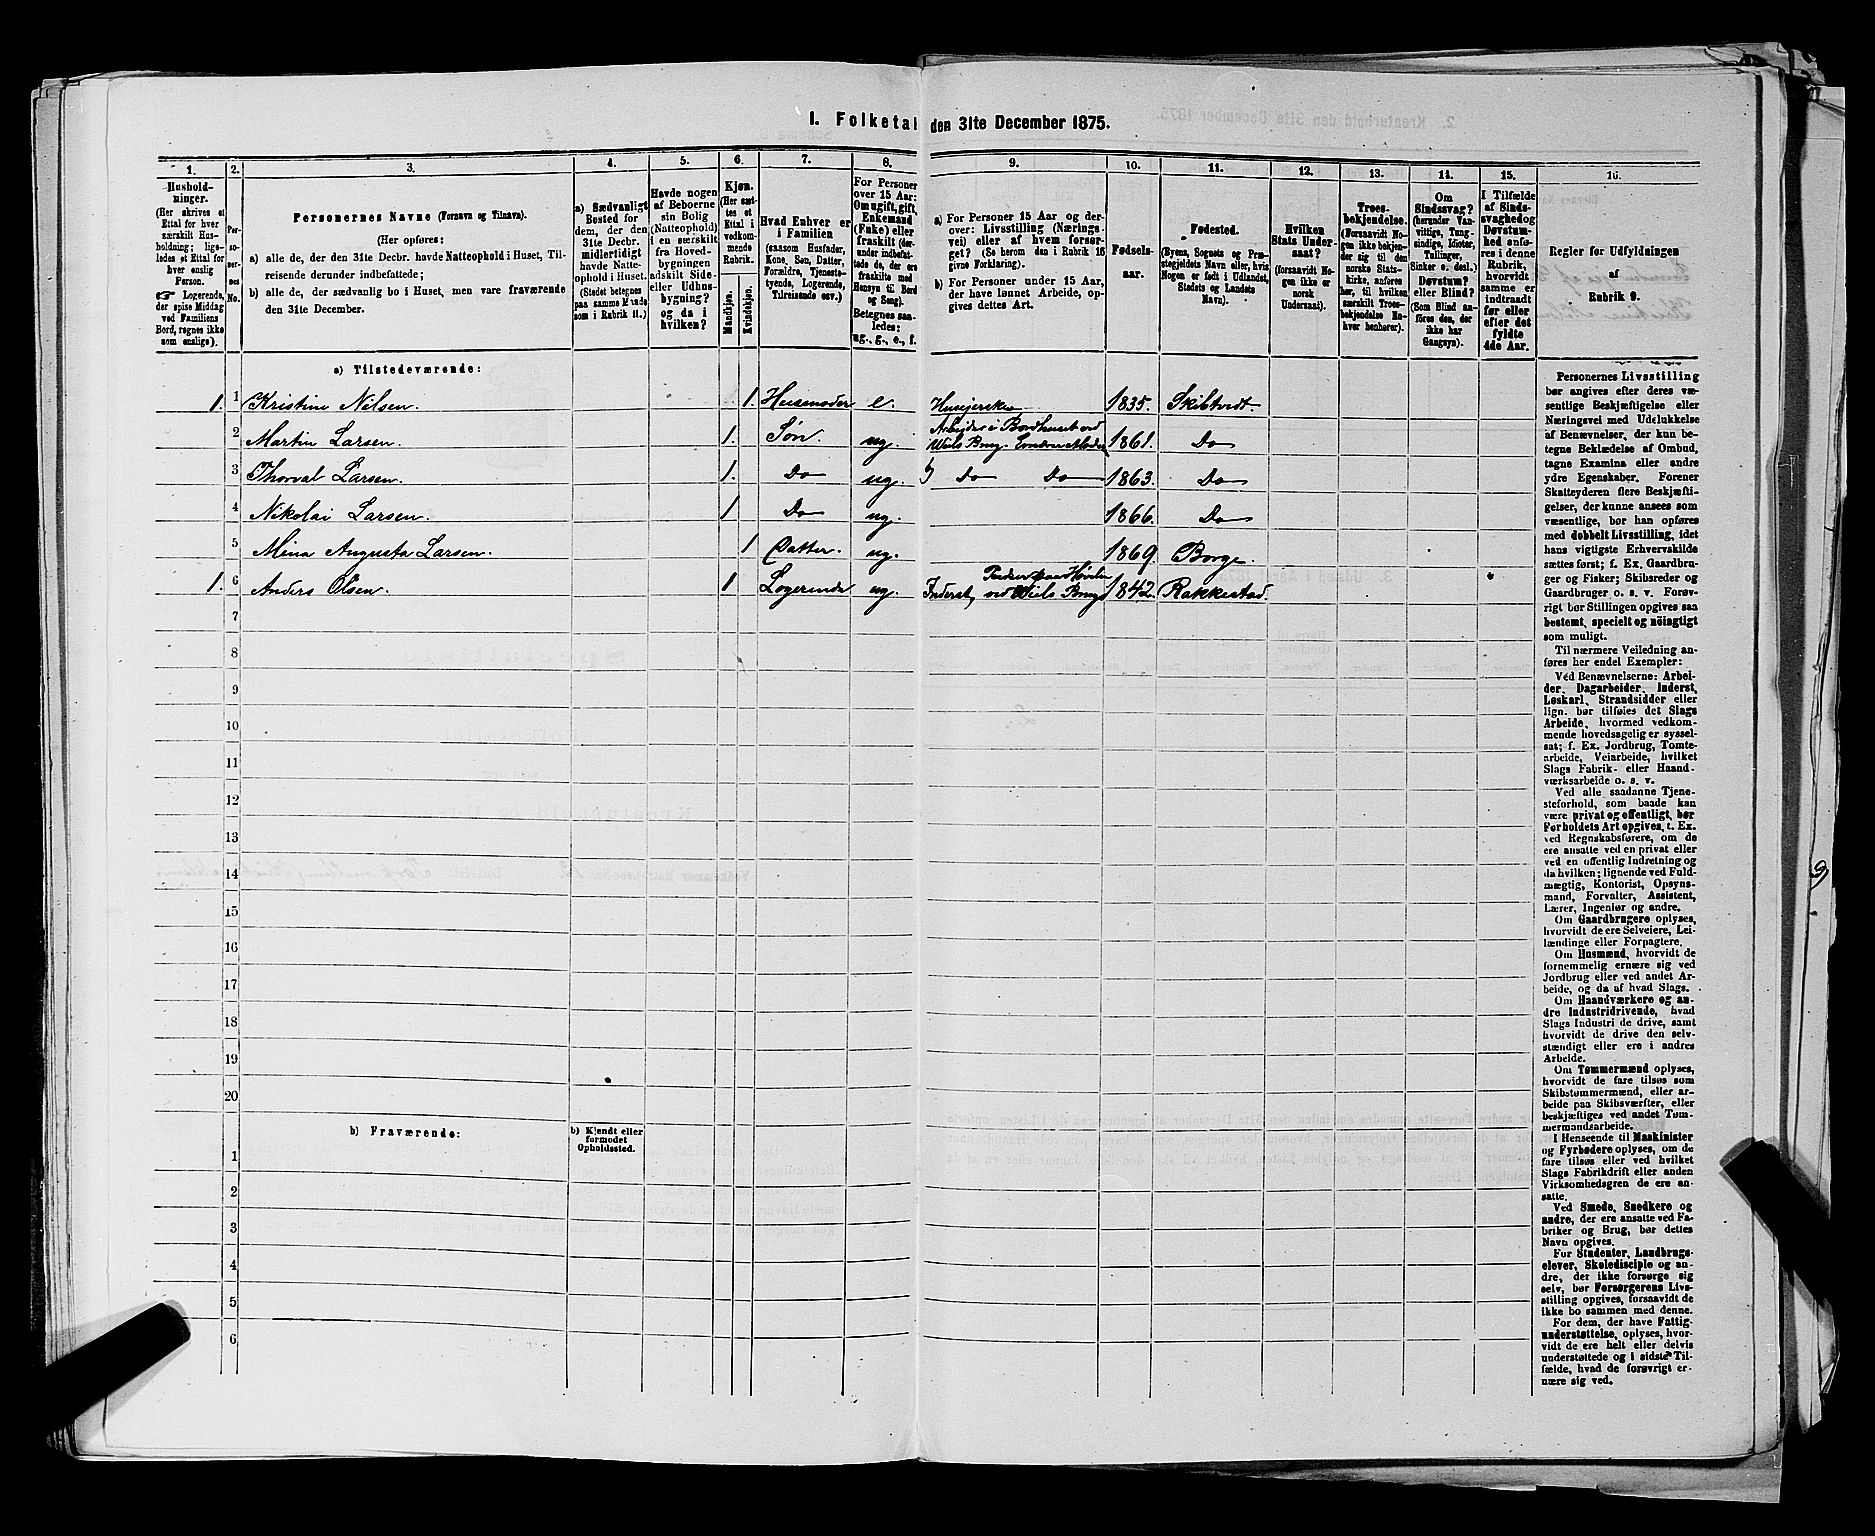 I. Folketal den 31te December 1875.
1. 2. 3. 4. 5. 6. 7. 8. 9. 10. 11. 12. 13. 14. 15. 16.
Hushold-
ninger.
(Her skrives et
Ettal for hver
særskilt Hus-
holdning; lige-
ledes et Ettal for
hver enslig
Person.
☞ Logerende,
der spise Middag
ved Familiens
Bord, regnes ikke
som enslige).
Per-
so-
ner-
nes
No.
Personernes Navne (Fornavn og Tilnavn).
(Her opføres:
a) alle de, der den 31te Decbr. havde Natteophold i Huset, Til-
reisende derunder indbefattede;
b) alle de, der sædvanlig bo i Huset, men vare fraværende
den 31te December.
a) Sædvanligt
Bosted for
dem, der den
31te Decbr.
midlertidigt
havde Natte-
ophold i Huset.
(Stedet betegnes
paa samme Maade
som i Rubrik 11.)
Havde nogen
af Beboerne
sin Bolig
(Natteophold)
i en særskilt
fra Hoved-
bygningen
adskilt Side-
eller Udhus-
bygning?
og da i
hvilken?
Kjøn.
(Her sæt-
tes et
Ettal i
vedkom-
mende
Rubrik.
Mandkjøn.
Kvindekjøn.
Hvad Enhver er
i Familien
(saasom Husfader,
Kone, Søn, Datter,
Forældre, Tjeneste-
tyende, Logerende,
Tilreisende osv.)
For Personer
over 15 Aar:
Om ugift, gift,
Enkemand
(Enke) eller
fraskilt (der-
under indbefat-
tede de, der ere
fraskilte med
Hensyn til Bord
og Seng).
Betegnes saa-
ledes:
ug., g., e., f.
a) For Personer 15 Aar og der-
over: Livsstilling (Nærings-
vei) eller af hvem forsør-
get? (Se herom den i Rubrik 16
givne Forklaring).
b) For Personer under 15 Aar,
der have lønnet Arbeide, op-
gives dettes Art.
Fødsels-
aar.
Fødested.
(Byens, Sognets og Præ-
stegjeldets Navn eller, hvis
Nogen er født i Udlandet,
Stedets og Landets
Navn).
Hvilken
Stats Under-
saat?
(forsaavidt No-
gen ikke er
norsk
Undersaat).
Troes-
bekjendelse.
(Forsaavidt No-
gen ikke bekjen-
der sig til den
norske Stats-
kirke, anføres
her, til hvilken
særskilt Troes-
bekjendelse En-
hver henhører).
Om
Sindssvag?
(herunder Van-
vittige, Tung-
sindige, Idioter,
Tullinger,
Sinker o. desl.)
Døvstum?
eller Blind?
(Som Blind an-
føres den, der
ikke har
Gangsyn).
I Tilfælde
af Sinds-
svaghed og
Døvstum-
hed anfø-
res i denne
Rubrik,
hvorvidt
samme er
indtraadt
før eller
efter det
fyldte
4de Aar.
Regler for Udfyldningen
af
Rubrik 9.
a) Tilstedeværende:
1. 1 Kristine Nilsen. 1. Husmoder e. Huseierske 1835. Skibtvedt.
2 Martin Larsen. 1. Søn. ug. Arbeider i Bordhuset ved
Wiels Brug. 1861. Do
3 Thorval Larsen. 1. Do ug. Do Do 1863. Do
4 Nikolai Larsen. 1 Do ug. 1866. Do
5 Mina Augusta Larsen. 1 Datter. ug. 1869. Borge.
1. 6 Anders Olsen. 1 Logerende ug. Inderst, ved Wiels Brug 1842. Rakkestad.
7
8
9
10
11
12
13
14
15
16
17
18
19
20
b) Fraværende:
b) Kjendt eller
formodet
Opholdssted.
1
2
3
4
5
6
Personernes Livsstilling
bør angives efter deres væ-
sentlige Beskjæftigelse eller
Næringsvei med Udelukkelse
af Benævnelser, der kun be-
tegne Beklædelse af Ombud,
tagne Examina eller andre
ydre Egenskaber. Forener
Skatteyderen flere Beskjæfti-
gelser, der kunne ansees som
væsentlige, bør han opføres
med dobbelt Livsstilling, idet
hans vigtigste Erhvervskilde
sættes først; f. Ex. Gaardbru-
ger og Fisker; Skibsreder og
Gaardbruger o. s. v. Forøv-
rigt bør Stillingen opgives saa
bestemt, specielt og nöiagtigt
som muligt.
Til nærmere Veiledning an-
føres her endel Exempler:
Ved Benævnelserne: Arbei-
der, Dagarbeider, Inderst,
Løskarl, Strandsidder eller
lign. bør tilføies det Slags
Arbeide, hvormed vedkom-
mende hovedsagelig er syssel-
sat; f. Ex. Jordbrug, Tomte-
arbeide, Veiarbeide, hvilket
Slags Fabrik- eller Haand-
værksarbeide o. s. v.
Ved alle saadanne Tjene-
steforhold, som baade kan
være privat og offentligt, bør
Forholdets Art opgives, t. Ex.
ved Regnskabsførere, om de
ere ansatte ved en privat eller
ved en offentlig Indretning og
da hvilken; lignende ved Fuld-
mægtig, Kontorist, Opsyns-
mand, Forvalter, Assistent,
Lærer, Ingeniør og andre.
Om Gaardbrugere oplyses,
hvorvidt de ere Selveiere, Lei-
lændinge eller Forpagtere.
Om Husmænd, hvorvidt de
fornemmelig ernære sig ved
Jordbrug eller ved andet Ar-
beide, og da af hvad Slags.
Om Haandværkere og an-
dre Industridrivende, hvad
Slags Industri de drive, samt
hvorvidt de drive den selv-
stændigt eller ere i andres
Arbeide.
Om Tømmermænd oplyses,
hvorvidt de fare tilsøs som
Skibstømmermænd, eller ar-
beide paa Skibsværfter, eller
beskjæftiges ved andet Tøm-
mermandsarbeide.
I Henseende til Maskinister
og Fyrbødere oplyses, om de
fare tilsøs eller ved hvilket
Slags Fabrikdrift eller anden
Virksomhedsgren de ere an-
satte.
Ved Smede, Snedkere og
andre, der ere ansatte ved Fa-
briker og Brug, bør dettes
Navn opgives.
For Studenter, Landbrugs-
elever, Skoledisciple og an-
dre, der ikke forsørge sig
selv, bør Forsørgerens Livs-
stilling opgives, forsaavidt de
ikke bo sammen med denne.
For dem, der have Fattig-
understøttelse, oplyses, hvor-
vidt de ere helt eller delvis
understøttede og i sidste Til-
fælde, hvad de forøvrigt er-
nære sig ved.